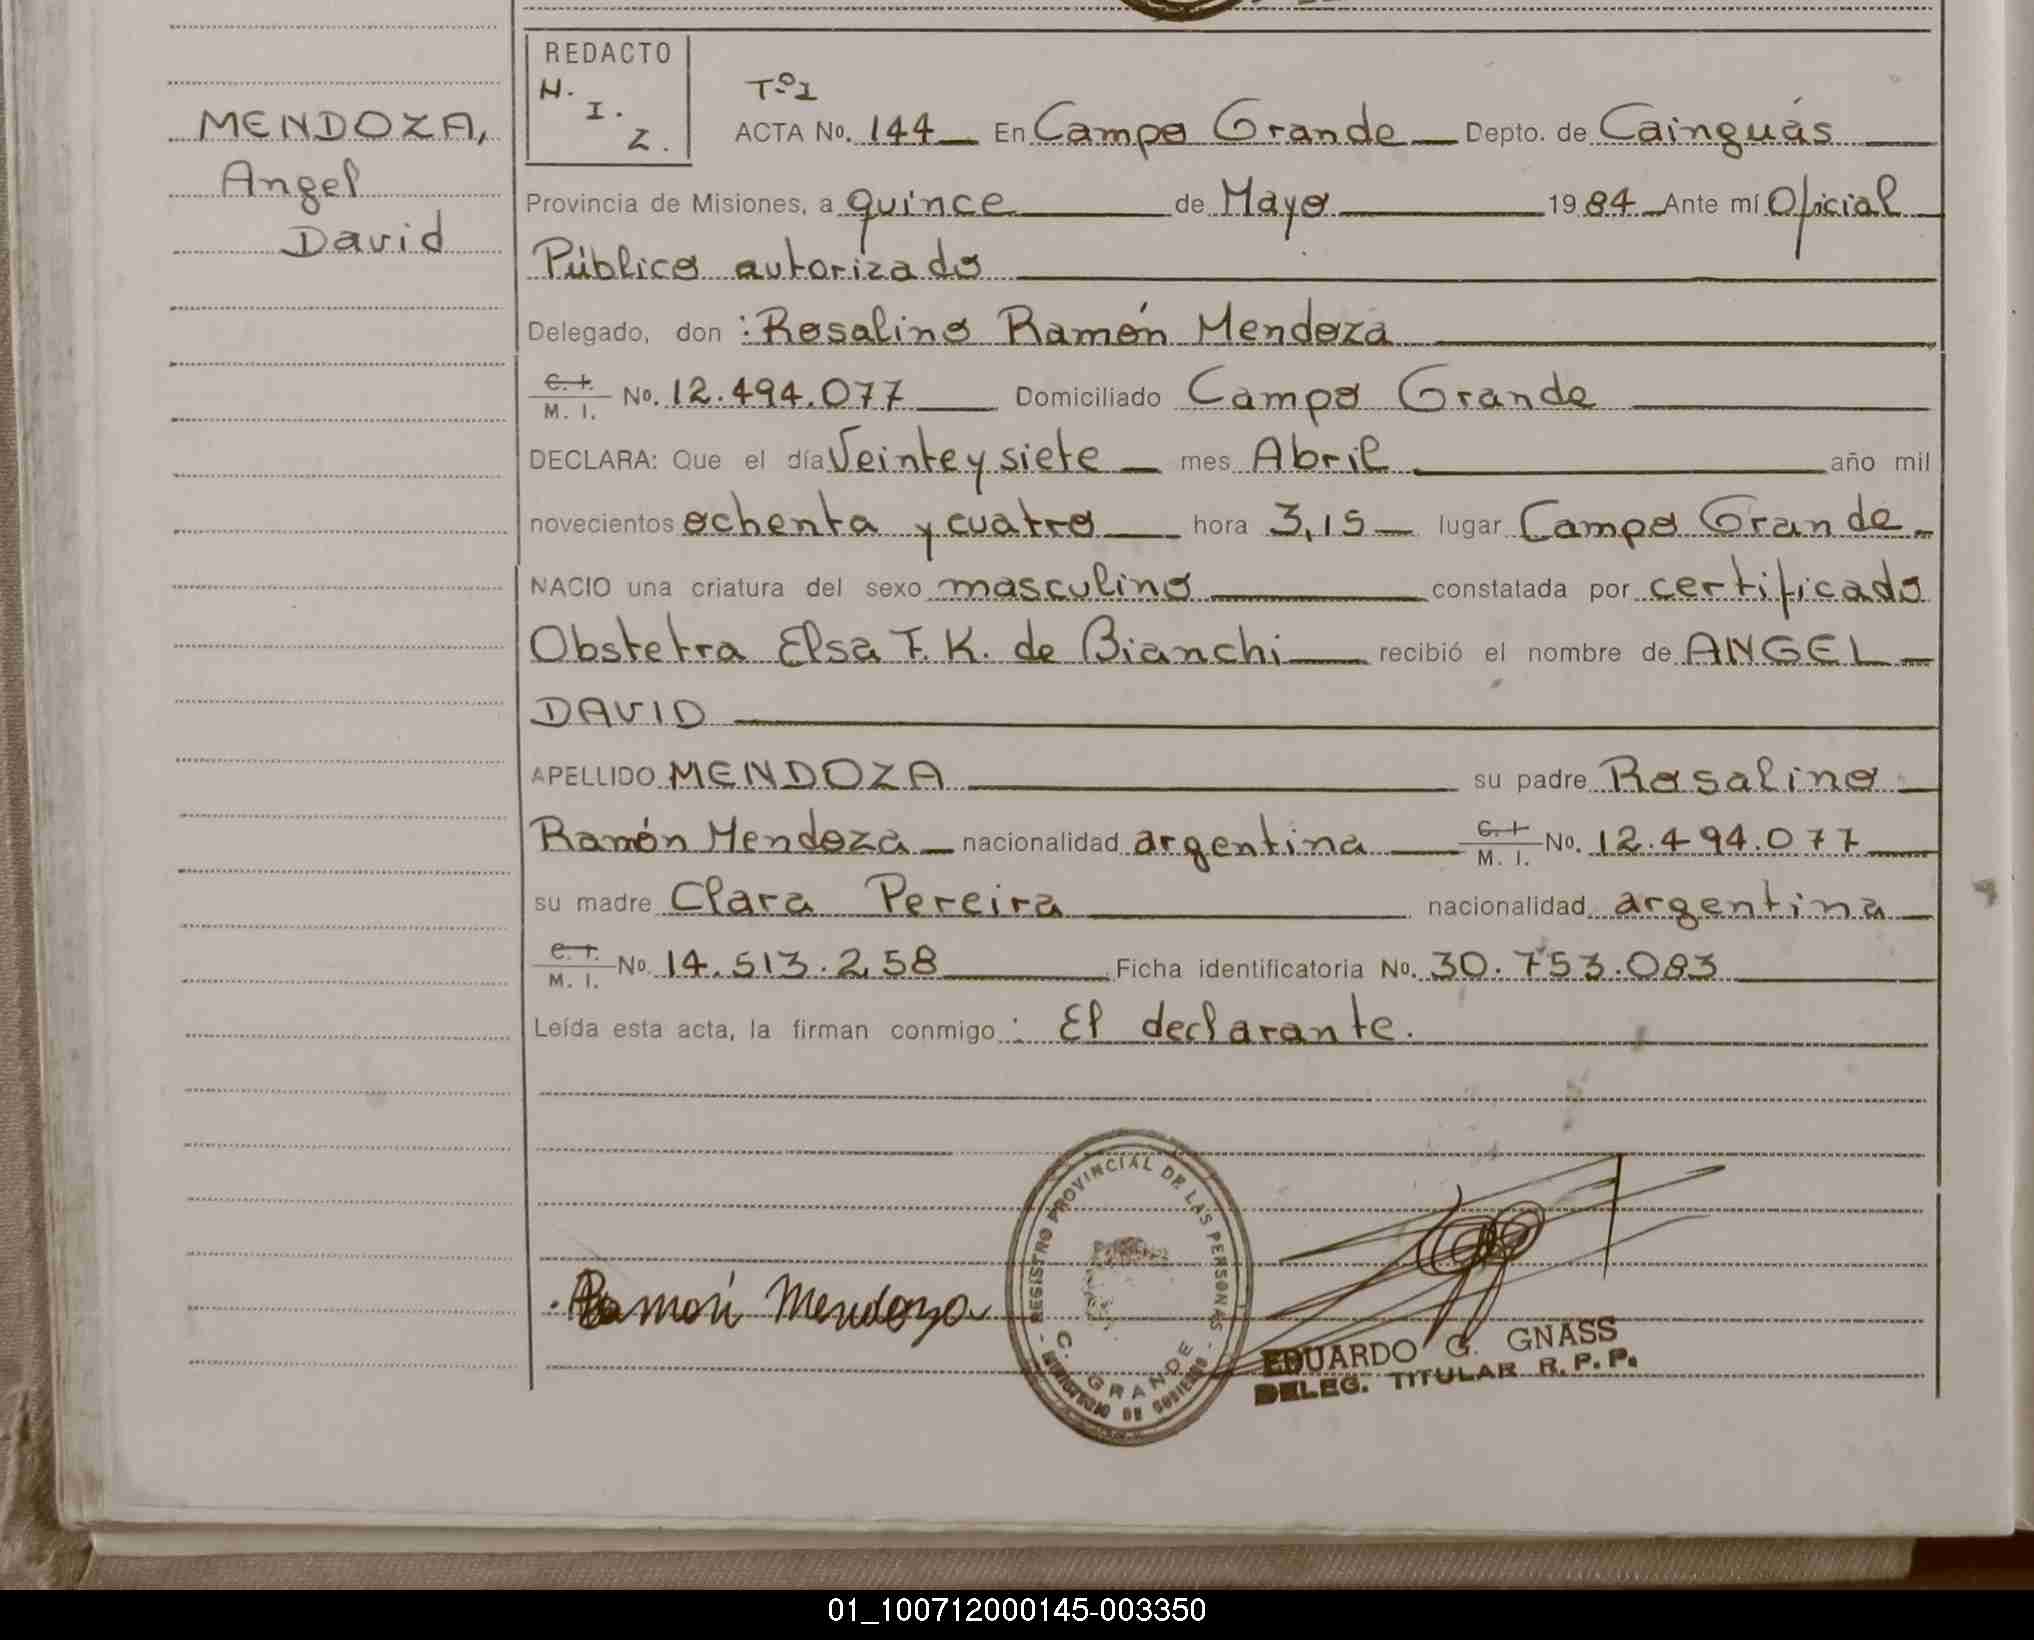 REDACTO
H.
I.
Z.
MENDOZA,
Angel
David
Tº I
ACTA No. 144 En Campo Grande Depto. de Cainguás
Provincia de Misiones, a quince de Mayo 1984 Ante mí Oficial
Público autorizado
Delegado, don : Rosalino Ramón Mendoza
C. I. / M. I. No. 12.494.077 Domiciliado Campo Grande
DECLARA: Que el día Veinte y siete mes Abril año mil
novecientos ochenta y cuatro hora 3,15 lugar Campo Grande
NACIO una criatura del sexo masculino constatada por certificado
Obstetra Elsa F. K. de Bianchi recibió el nombre de ANGEL
DAVID
APELLIDO MENDOZA su padre Rosalino
Ramón Mendoza nacionalidad argentina C. I. / M. I. No. 12.494.077
su madre Clara Pereira nacionalidad argentina
C. I. / M. I. No. 14.513.258 Ficha identificatoria No. 30.753.083
Leída esta acta, la firman conmigo : El declarante.
REGISTRO PROVINCIAL DE LAS PERSONAS
C. GRANDE
MINISTERIO DE GOBIERNO
Ramón Mendoza
EDUARDO G. GNASS
DELEG. TITULAR R. P. P.
01_100712000145-003350